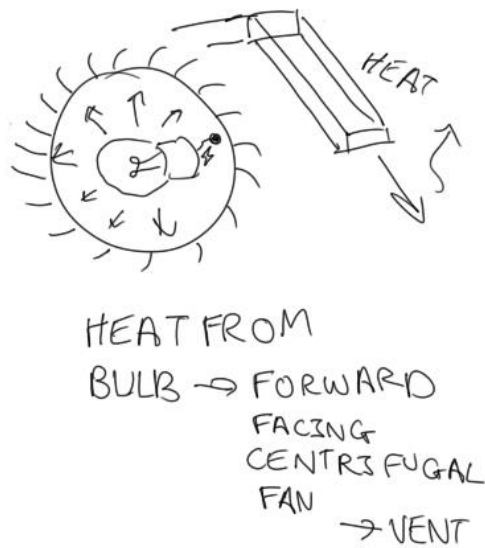 HEAT
HEAT FROM
BULB → FORWARD
FACING
CENTRIFUGAL
FAN
→ VENT